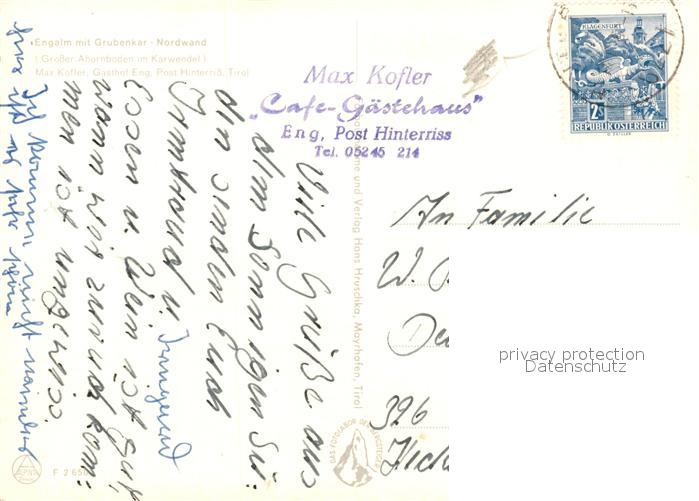 Engalm mit Grubenkar - Nordwand
(Großer Ahornboden im Karwendel)
Max Kofler, Gasthof Eng, Post Hinterriß, Tirol
Max Kofler
„Cafe-Gästehaus"
Eng, Post Hinterriss
Tel. 05245 214
KLAGENFURT
2S
REPUBLIK ÖSTERREICH
Viele Grüße aus
dem sonnigen Sü-
den senden Euch
Irmtraud u.
Essen u. Wein ist gut
Wann wir zurück kom-
men ist ungewiss.
Ich komme nicht wieder
hier ist es sehr schön
und Verlag Hans Hruschka, Mayrhofen, Tirol
DAS FOTOLABOR DER BERGSTEIGER
An Familie
W.
326
privacy protection
Datenschutz
F 265